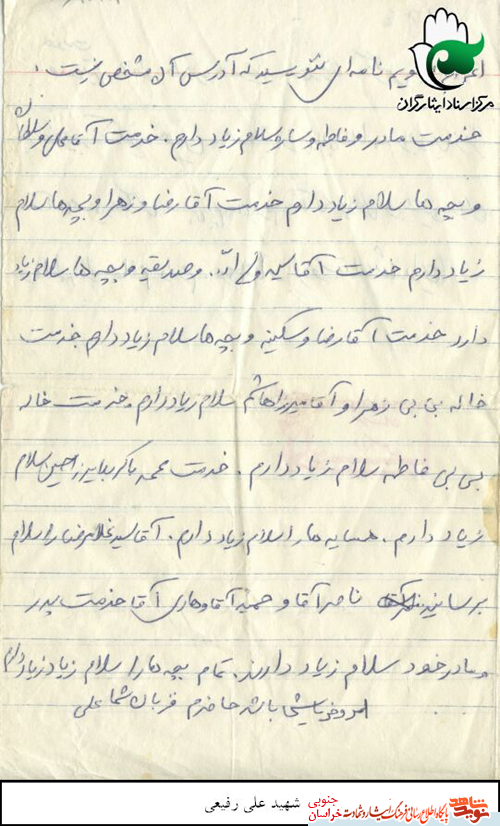 مرکز اسناد ایثارگران
نامه‌ای ننویسید که آدرس آن مشخص نیست.
خدمت مادر و فاطمه و ساره سلام زیاد دارم. خدمت آقا علی و سلطان
و بچه ها سلام زیاد دارم خدمت آقا رضا و زهرا و بچه ها سلام
زیاد دارم خدمت آقا سید و صدیقه و بچه ها سلام زیاد
دارد خدمت آقا رضا و سکینه و بچه ها سلام زیاد دارم خدمت
خاله بی بی زهرا و آقا میرزا هاشم سلام زیاد دارم. خدمت خاله
بی بی فاطمه سلام زیاد دارم. خدمت عمه با کربلایی حسین سلام
زیاد دارم. همسایه ها را سلام زیاد دارم. آقا سید غلامرضا را سلام
برسانید ناصر آقا و حمید آقا و هادی آقا خدمت پدر
و مادر خود سلام زیاد دارند. تمام بچه ها را سلام زیاد زیاد دارم
باشد حاضرم قربان شما علی
شهید علی رفیعی
نوید شاهد
پایگاه اطلاع رسانی فرهنگ ایثار و شهادت
خراسان جنوبی